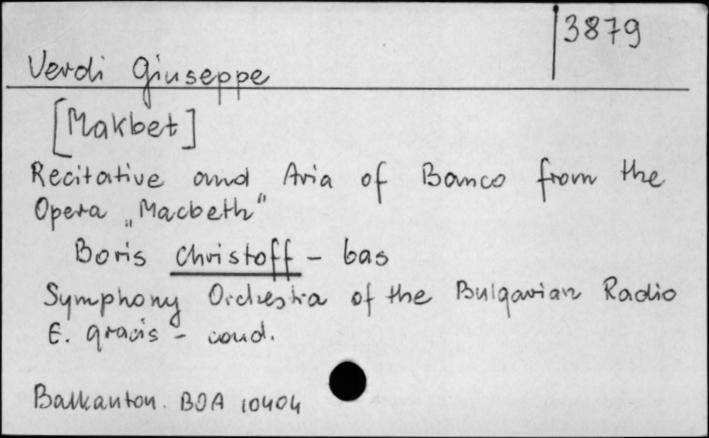 3879
Verdi Giuseppe
[Makbet]
Recitative and Aria of Banco from the
Opera „Macbeth"
Boris Christoff - bas
Symphony Orchestra of the Bulgarian Radio
E. gracis - cond.
Balkanton. BOA 10404